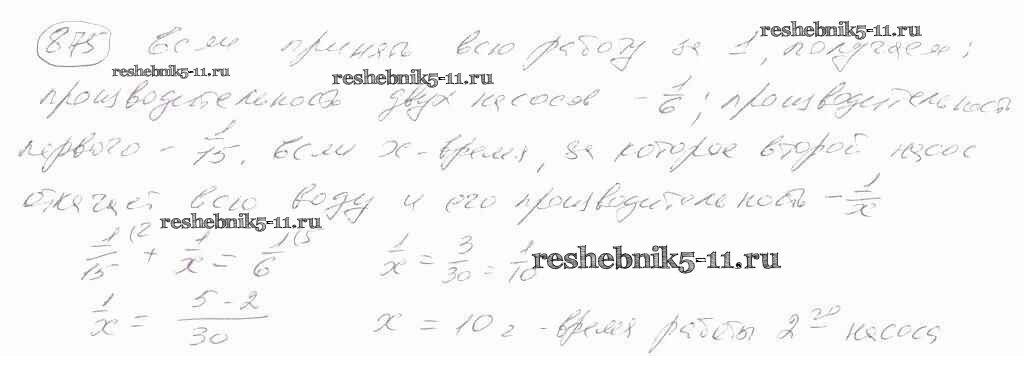 reshebnik5-11.ru
875 Если принять всю работу за 1, получаем:
reshebnik5-11.ru reshebnik5-11.ru
производительность двух насосов - 1/6; производительность
первого - 1/15. Если x - время, за которое второй насос
откачает всю воду и его производительность - 1/x
reshebnik5-11.ru
1/15 (2 + 1/x = 1/6 (5 1/x = 3/30 = 1/10
reshebnik5-11.ru
1/x = 5-2/30 x = 10 г - время работы 2го насоса